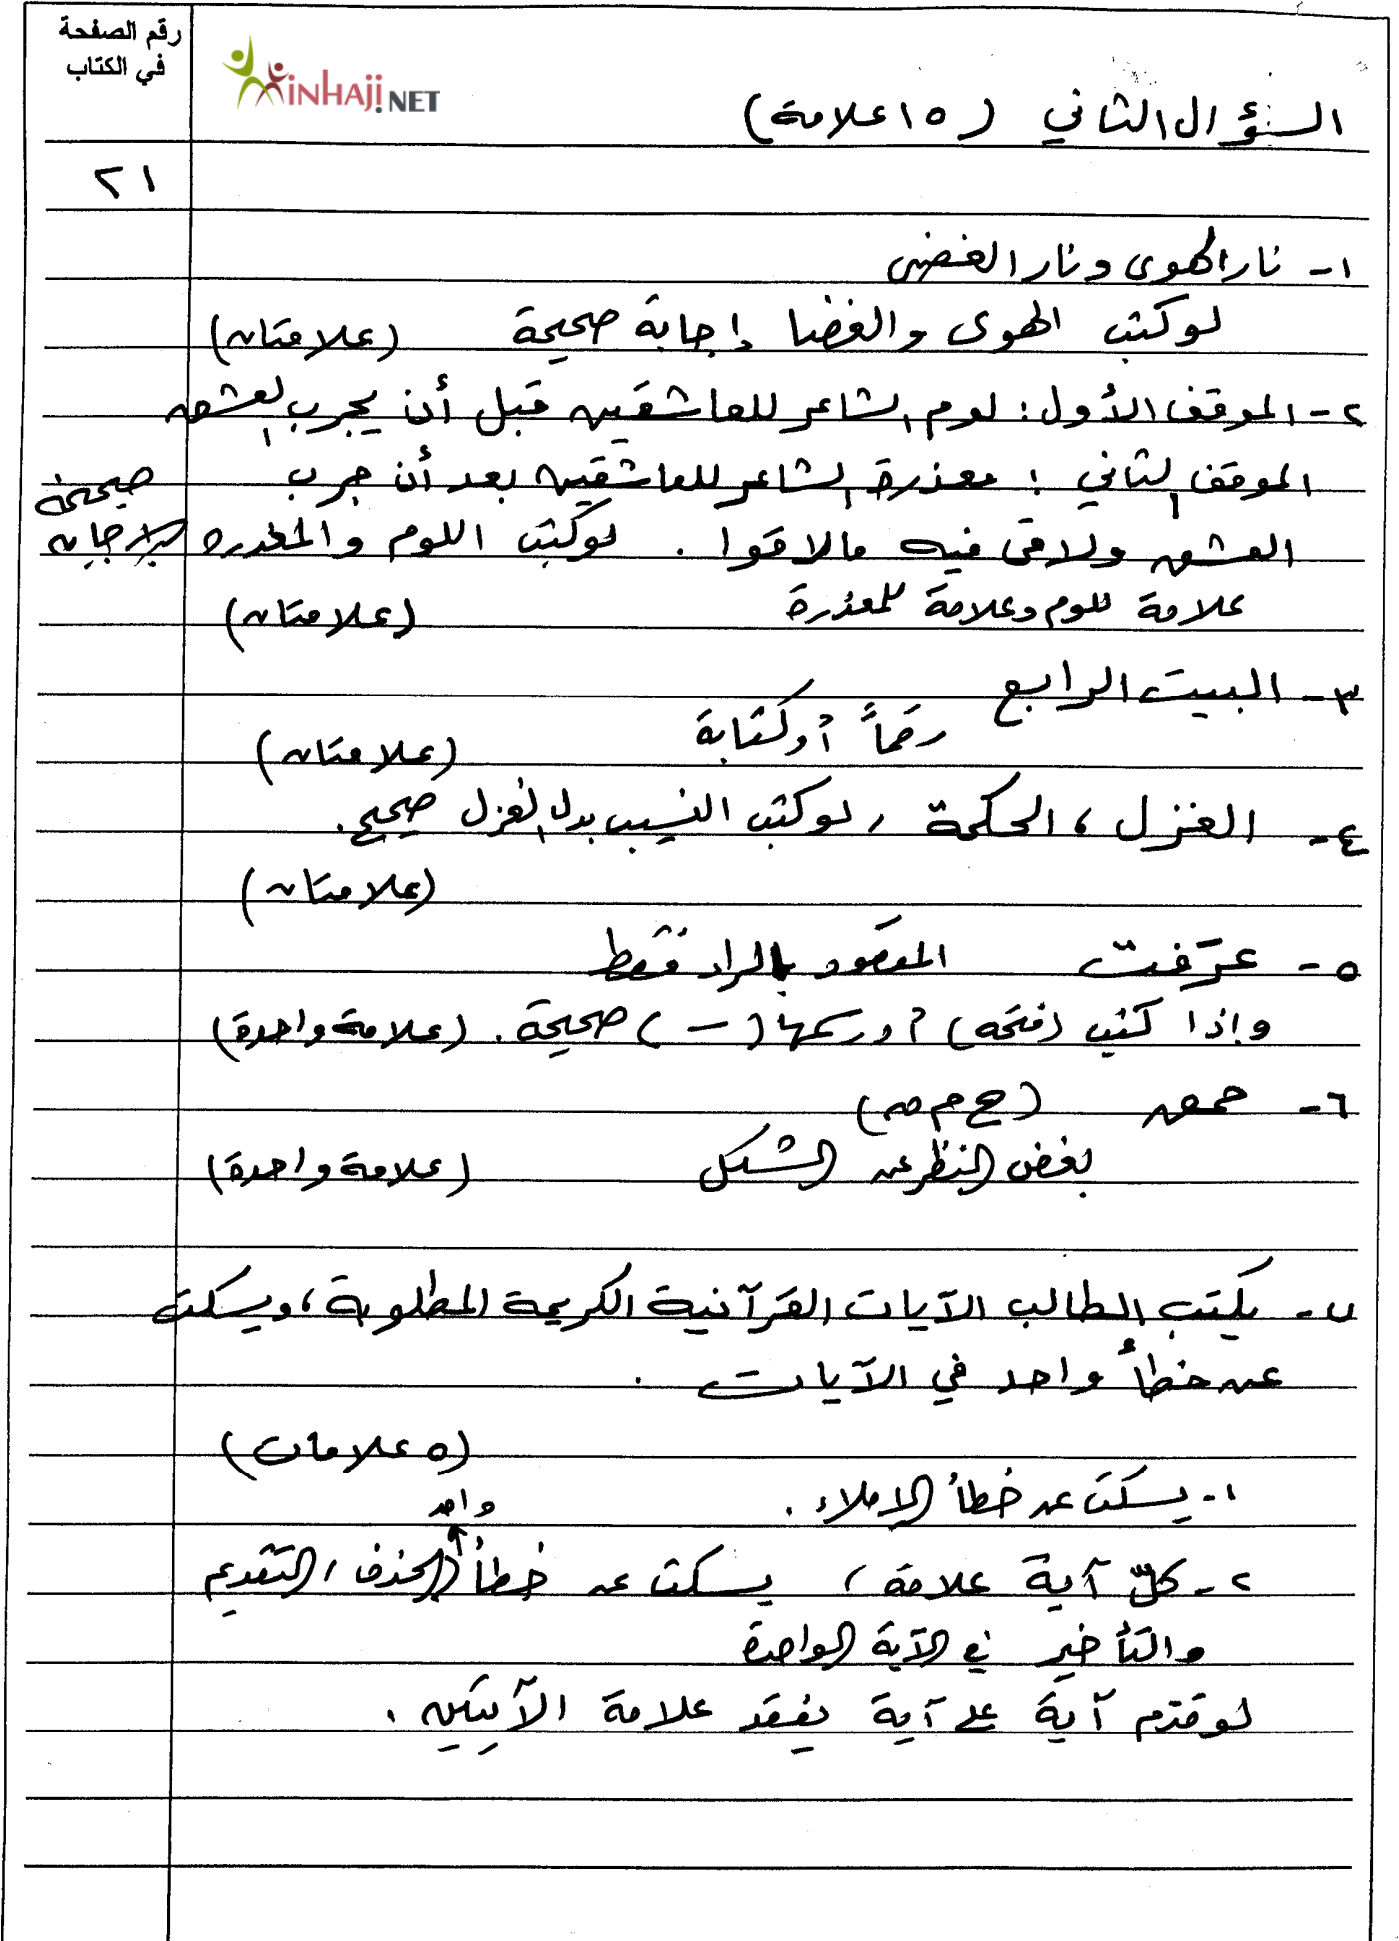 رقم الصفحة
في الكتاب
MINHAJI.NET
السؤال الثاني (١٥ علامة)
٢١
١- نار الهوى ونار الغضى
لو كتب الهوى والغضا إجابة صحيحة (علامتان)
٢- الموقف الأول: لوم الشاعر للعاشقين قبل أن يجرب العشق
الموقف الثاني: معذرة الشاعر للعاشقين بعد أن جرب
العشق ولاقى فيه مالاقوا. لو كتب اللوم والمعذرة الإجابة صحيحة
علامة للوم وعلامة للمعذرة (علامتان)
٣- البيت الرابع
رقماً أو كتابة (علامتان)
٤- الغزل، الحكمة، لو كتب النسيب بدل الغزل صحيح.
(علامتان)
٥- عرَفت المقصود بالراء فقط
وإذا كتب (فتحه) أو رسمها (َ) صحيحة. (علامة واحدة)
٦- حمص (ح م ص)
بغض النظر عن الشكل (علامة واحدة)
٧- يكتب الطالب الآيات القرآنية الكريمة المطلوبة، ويسكت
عن خطأ واحد في الآيات.
(٥ علامات)
١- يسكت عن خطأ الإملاء.
٢- كلّ آية علامة، يسكت عن خطأ واحد (الحذف، التقديم
والتأخير في الآية الواحدة
لو قدّم آية على آية يفقد علامة الآيتين.